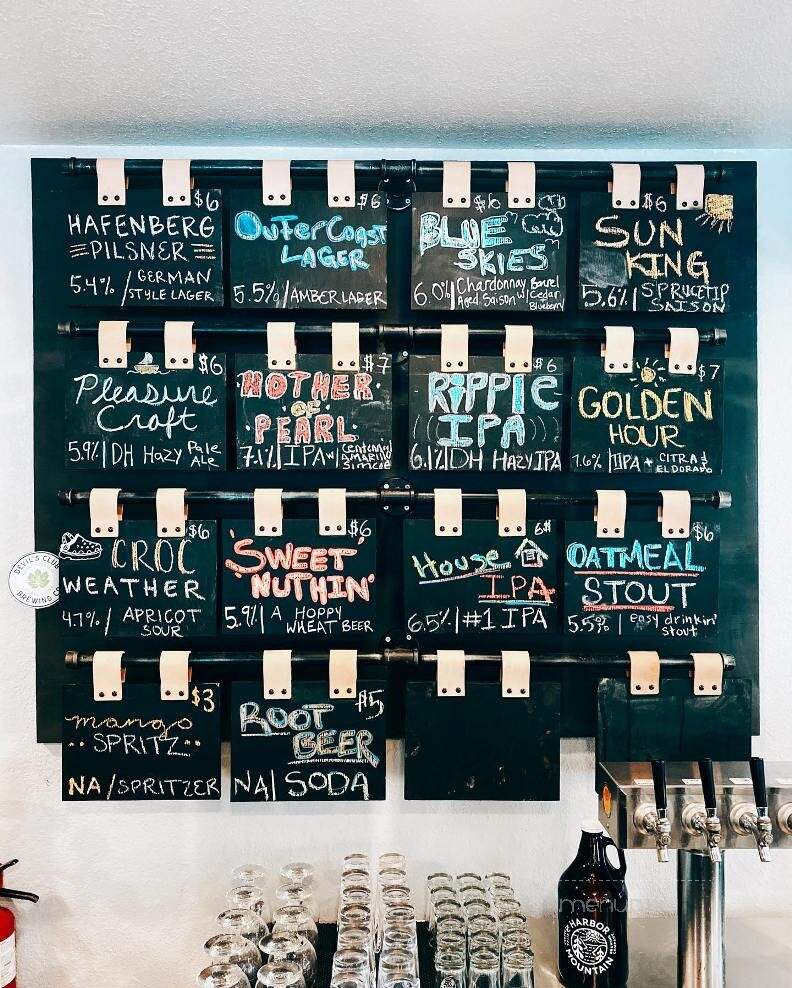 $6
HAFENBERG
PILSNER
5.4% / GERMAN
STYLE LAGER
$6
Outer Coast
LAGER
5.5% | AMBER LAGER
$6
BLUE
SKIES
6.0% | Chardonnay Barrel
Aged Saison w/ Cedar
Blueberry
$6
SUN
KING
5.6% | SPRUCE TIP
SAISON
$6
Pleasure
Craft
5.9% | DH Hazy Pale
Ale
$7
MOTHER
OF
PEARL
7.1% | IPA w/ Centennial
Amarillo
Simcoe
$6
RIPPLE
((( IPA )))
6.1% | DH HAZY IPA
$7
GOLDEN
HOUR
7.6% | IIPA + CITRA &
EL DORADO
$6
CROC
WEATHER
4.7% / APRICOT
SOUR
$6
'SWEET
NUTHIN'
5.9% | A HOPPY
WHEAT BEER
6$
House
IPA
6.5% | #1 IPA
$6
OATMEAL
STOUT
5.5% | easy drinkin'
stout
DEVIL'S CLUB
BREWING CO
$3
mango
SPRITZ
NA / SPRITZER
$5
ROOT
BEER
NA | SODA
menu
HARBOR
MOUNTAIN